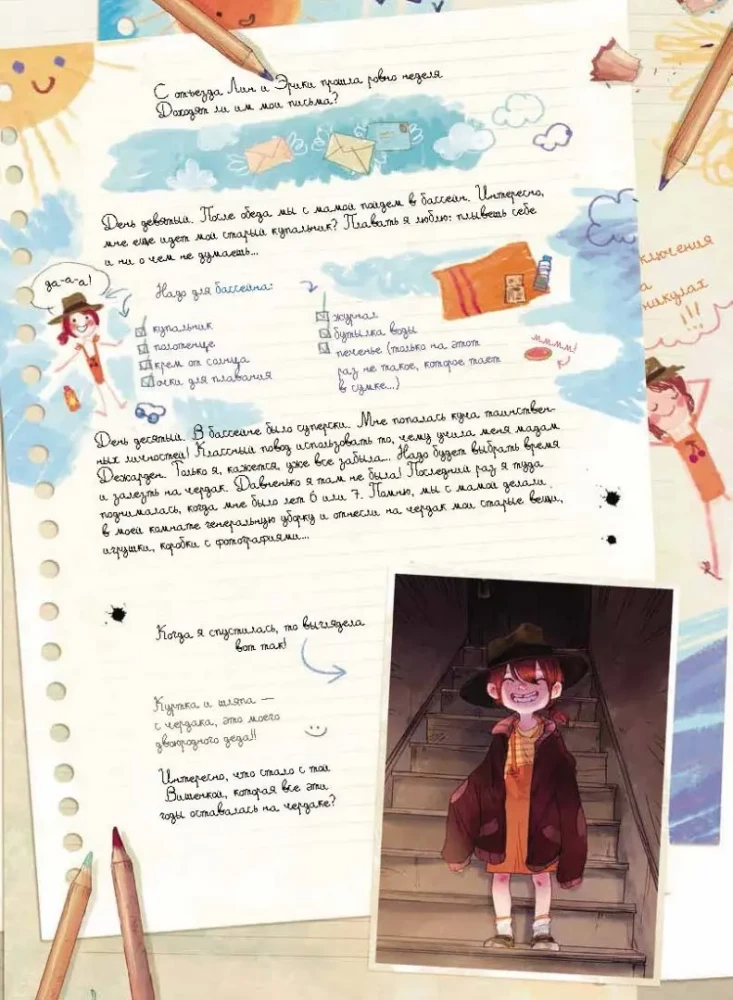 С отъезда Лин и Эрики прошла ровно неделя
Доходят ли им мои письма?
День девятый. После обеда мы с мамой пойдем в бассейн. Интересно,
мне еще идет мой старый купальник? Плавать я люблю: плывешь себе
и ни о чем не думаешь...
да-а-а!
Надо для бассейна:
купальник
полотенце
крем от солнца
очки для плавания
журнал
бутылка воды
печенье (только на этот
раз не такое, которое тает
в сумке...)
мммм!
ключения
а
никулах
!!!
День десятый. В бассейне было суперски. Мне попалась куча таинствен-
ных личностей! Классный повод использовать то, чему учила меня мадам
Дежарден. Только я, кажется, уже все забыла... Надо будет выбрать время
и залезть на чердак. Давненько я там не была! Последний раз я туда
поднималась, когда мне было лет 6 или 7. Помню, мы с мамой делали
в моей комнате генеральную уборку и отнесли на чердак мои старые вещи,
игрушки, коробки с фотографиями...
Когда я спустилась, то выглядела
вот так!
Куртка и шляпа —
с чердака, это моего
двоюродного деда!!
Интересно, что стало с той
Вишенкой, которая все эти
годы оставалась на чердаке?